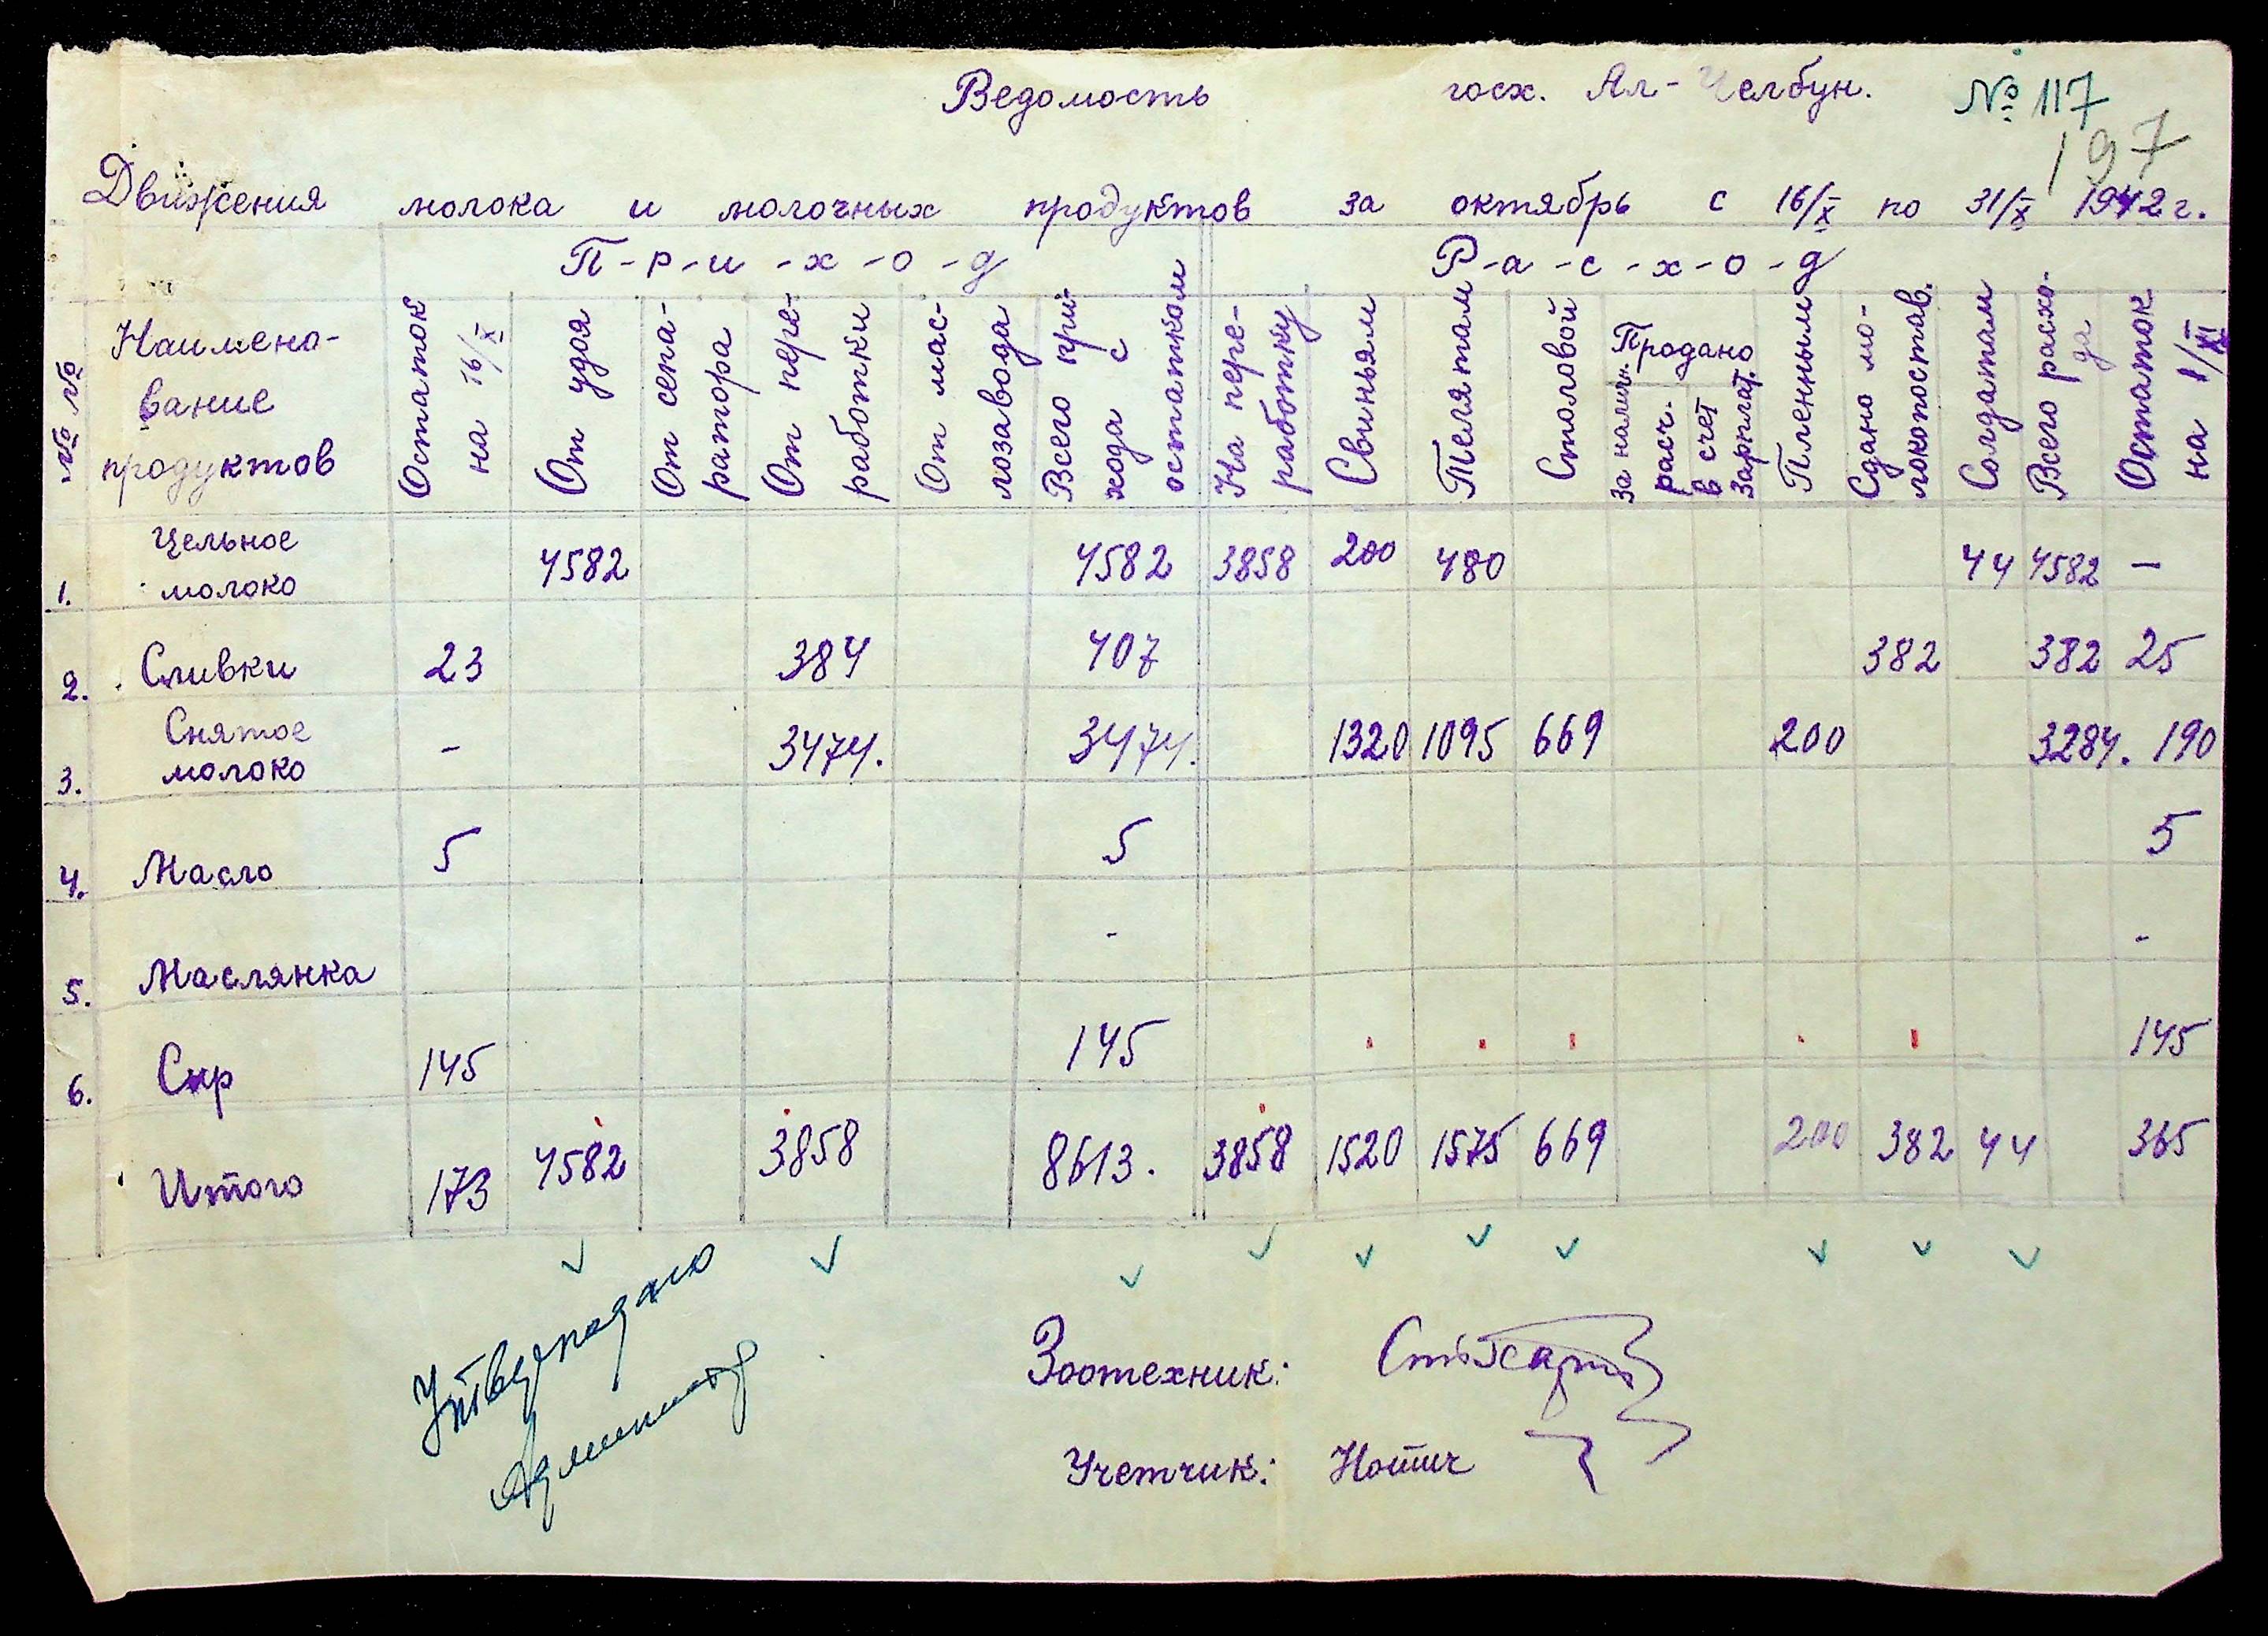 Ведомость госх. Ял-Челбун. № 117
197
Движения молока и молочных продуктов за октябрь с 16/X по 31/X 1942 г.
П-р-и-х-о-д Р-а-с-х-о-д
№ № Наимено-вание продуктов Остаток на 16/X От удоя От сепа-ратора От пере-работки От мас-лозавода Всего при-хода с остатком На пере-работку Свиньям Телятам Столовой Продано за наличн. расч. в счет зарплат. Пленным Сдано мо-локопостав. Солдатам Всего расхо-да Остаток на 1/XI
1. Цельное молоко 4582 4582 3858 200 480 44 4582 —
2. Сливки 23 384 407 382 382 25
3. Снятое молоко - 3474. 3474. 1320 1095 669 200 3284. 190
4. Масло 5 5 5
5. Маслянка - -
6. Сыр 145 145 145
Итого 173 4582 3858 8613. 3858 1520 1575 669 200 382 44 365
Зоотехник:
Учетчик: